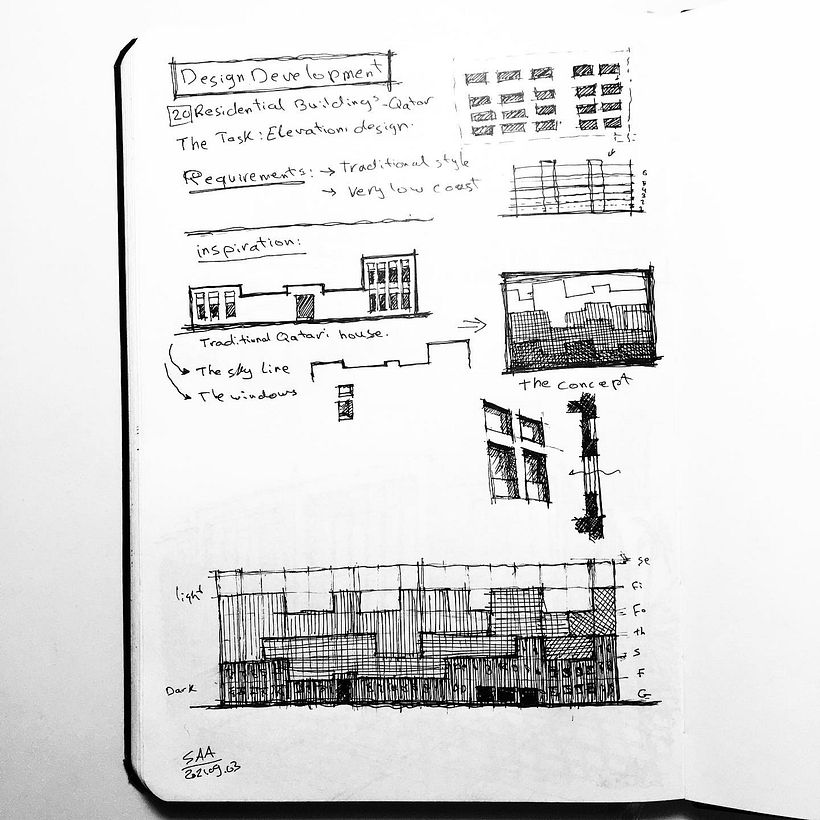 Design Development
20 Residential Buildings - Qatar
The Task: Elevation design.
Requirements: → Traditional style
→ very low coast
inspiration:
Traditional Qatari house.
The sky line
The windows
The concept
light
Dark
Se
Fi
Fo
th
S
F
G
SAA
2021.09.03